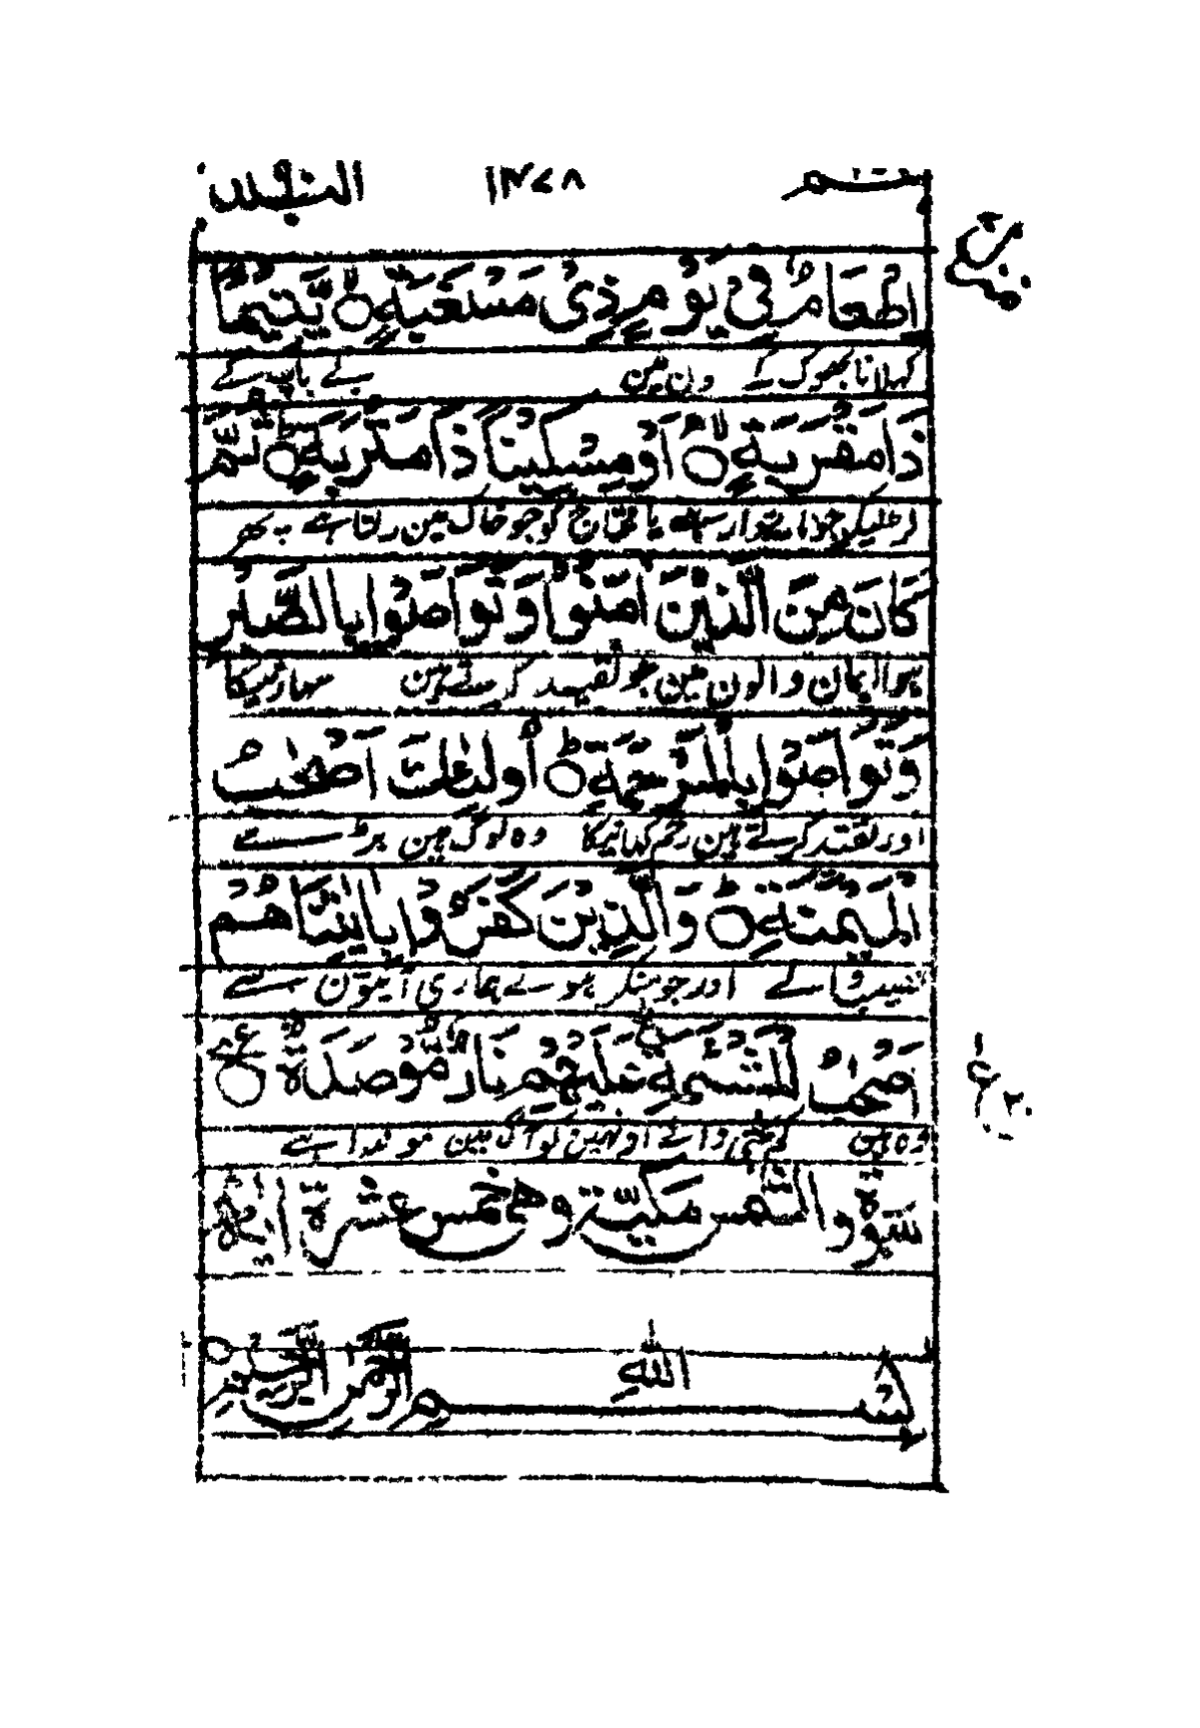 عم ١٣٧٨ البلد
اِطْعَامٌ فِیْ یَوْمٍ ذِیْ مَسْغَبَةٍ ۙ یَّتِیْمًا
کہلانا بھوک کے دن مین بے باپ کے
ذَا مَقْرَبَةٍ ۙ اَوْ مِسْكِیْنًا ذَا مَتْرَبَةٍ ؕ ثُمَّ
لڑکیکو جو ناتے دار ہے یا محتاج کو جو خاک مین رلتا ہے پھر
كَانَ مِنَ الَّذِیْنَ اٰمَنُوْا وَتَوَاصَوْا بِالصَّبْرِ
ہوا ایمان والون مین جو تقید کرتے ہین سہارنیکا
وَتَوَاصَوْا بِالْمَرْحَمَةِ ؕ اُولٰٓئِكَ اَصْحٰبُ
اور تقید کرتے ہین رحم کھانیکا وہ لوگ ہین بڑے
الْمَیْمَنَةِ ؕ وَالَّذِیْنَ كَفَرُوْا بِاٰیٰتِنَا هُمْ
نصیب والے اور جو منکر ہوے ہماری آیتون سے
اَصْحٰبُ الْمَشْئَمَةِ ؕ عَلَیْهِمْ نَارٌ مُّؤْصَدَةٌ ۠ ع
وہ ہین کم بختی والے اونہین کو آگ مین موندا ہے
سورة والشمس مكیة وهی خمس عشرة اٰیة
بِسْمِ اللّٰهِ الرَّحْمٰنِ الرَّحِیْمِ